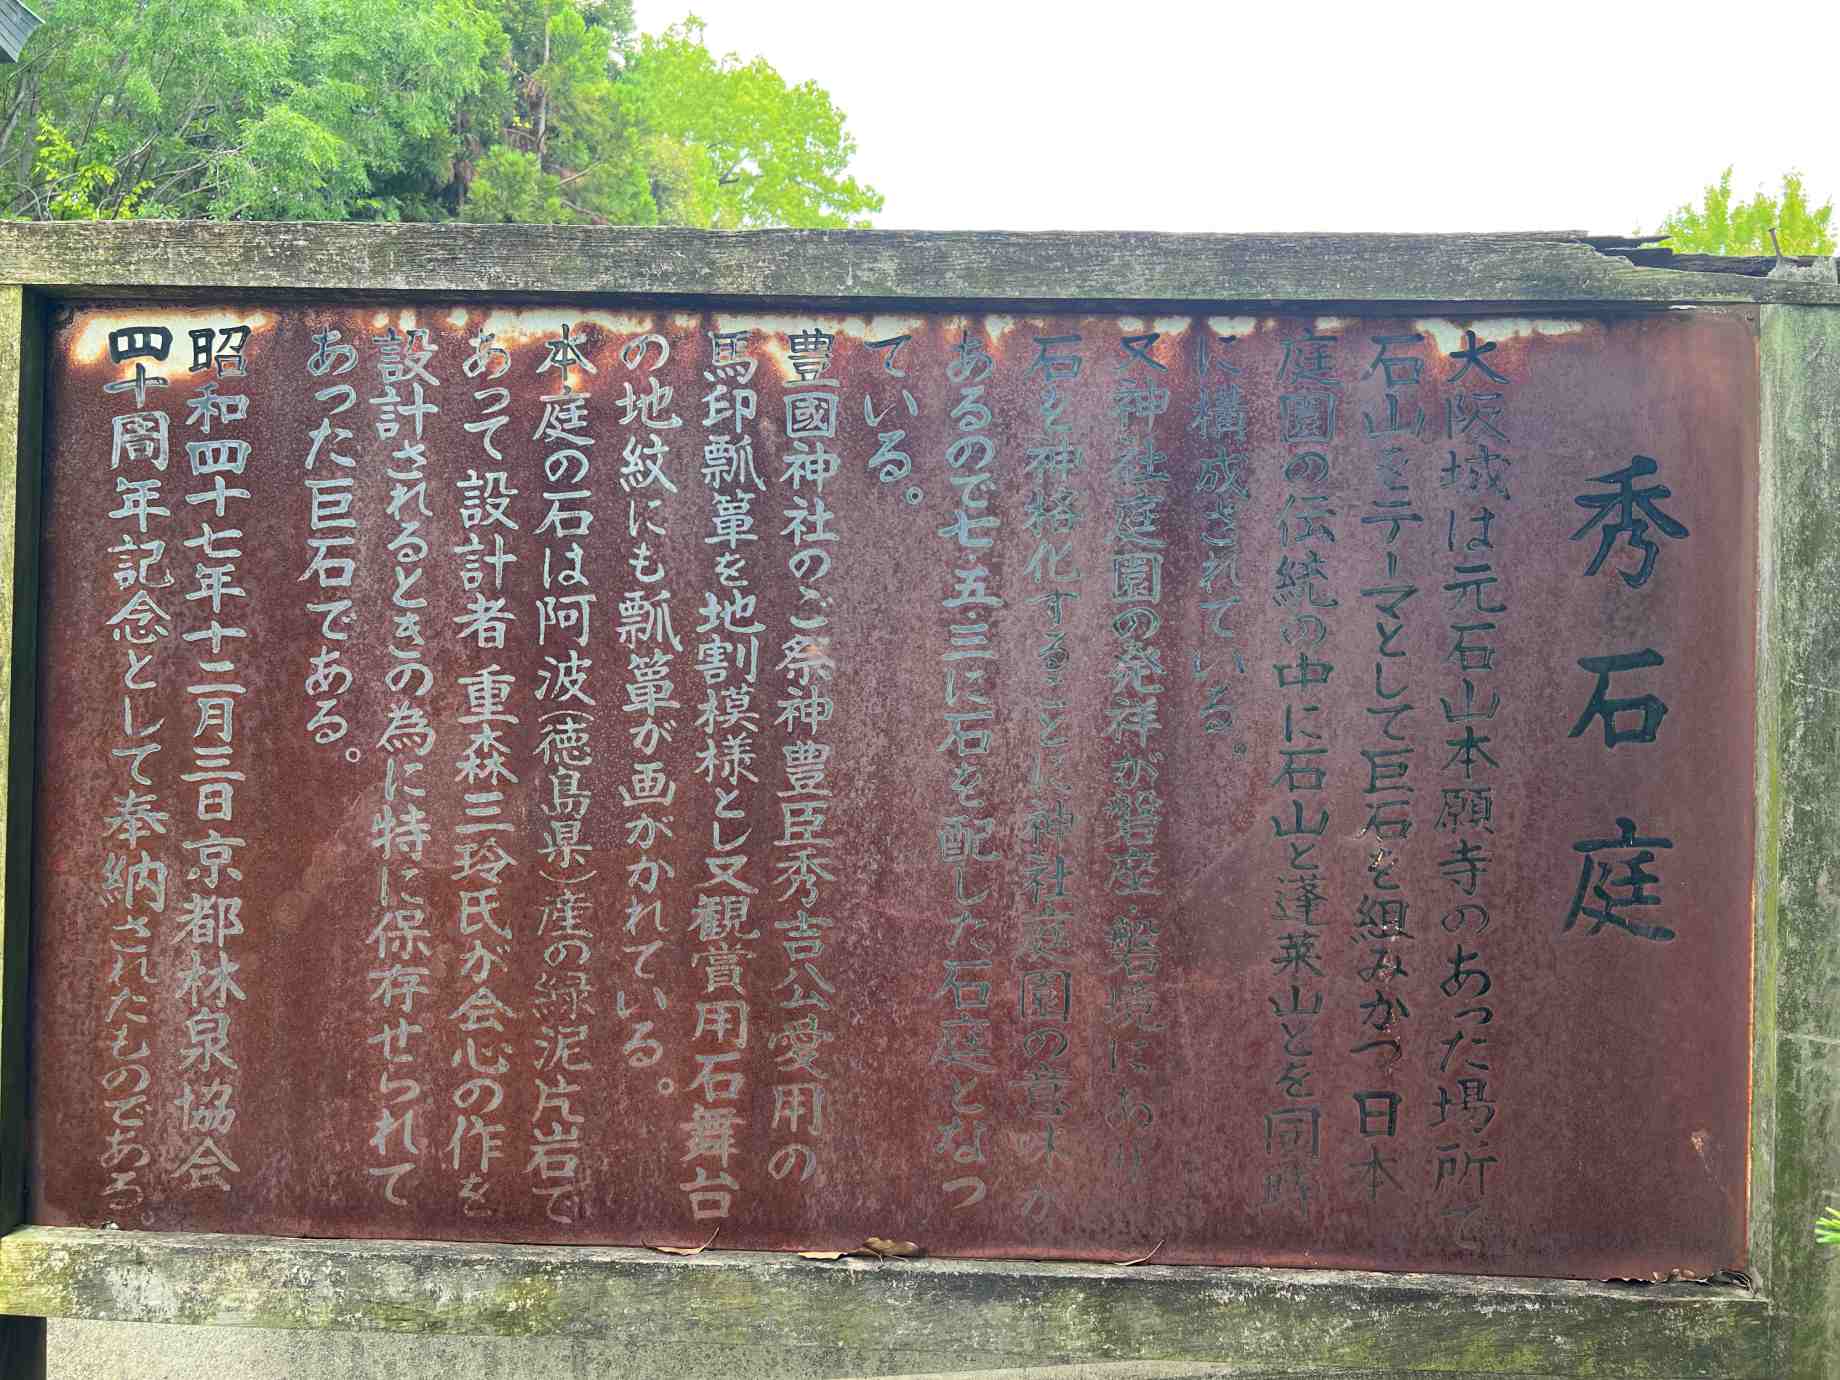 秀石庭
大阪城は元石山本願寺のあった場所で
石山をテーマとして巨石を組みかつ日本
庭園の伝統の中に石山と蓬莱山とを同時
に構成されている。
又神社庭園の発祥が磐座・磐境にあり
石を神格化することに神社庭園の意味が
あるので七・五・三に石を配した石庭となっ
ている。
豊國神社のご祭神豊臣秀吉公愛用の
馬印瓢箪を地割模様とし又観賞用石舞台
の地紋にも瓢箪が画がかれている。
本庭の石は阿波(徳島県)産の緑泥片岩で
あって設計者重森三玲氏が会心の作を
設計されるときの為に特に保存せられて
あった巨石である。
昭和四十七年十二月三日京都林泉協会
四十周年記念として奉納されたものである。